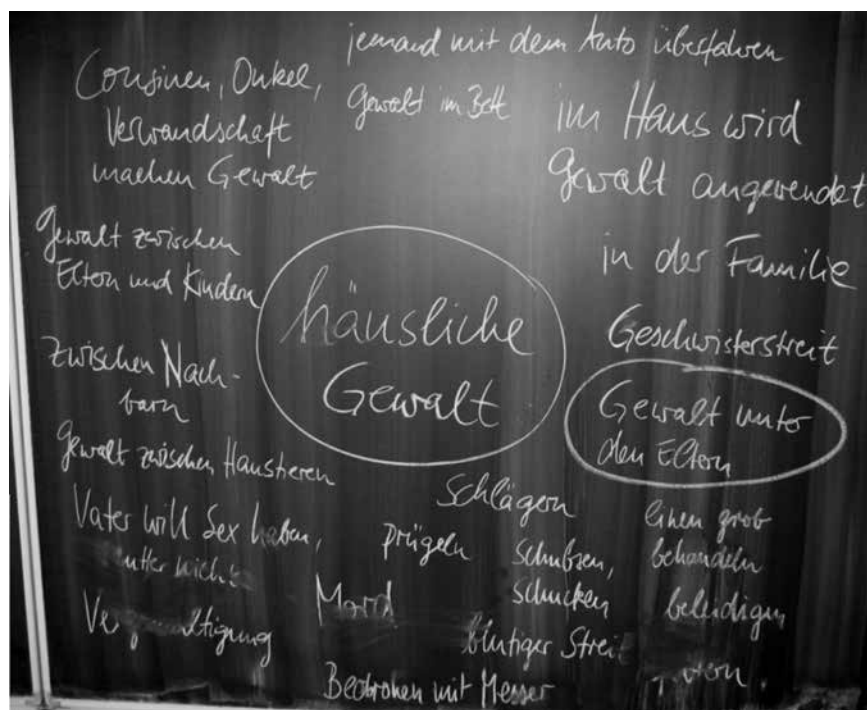 jemand mit dem Auto überfahren
Cousinen, Onkel,
Verwandschaft
machen Gewalt
Gewalt im Bett
im Haus wird
Gewalt angewendet
in der Familie
Gewalt zwischen
Eltern und Kindern
häusliche
Gewalt
Geschwisterstreit
zwischen Nach-
barn
Gewalt unter
den Eltern
Gewalt zwischen Haustieren
Schlägern
Vater will Sex haben,
nicht
prügeln
schubsen,
schucken
einen grob
behandeln
beleidigen
Mord
Vergewaltigung
blutiger Streit
Bedrohen mit Messer